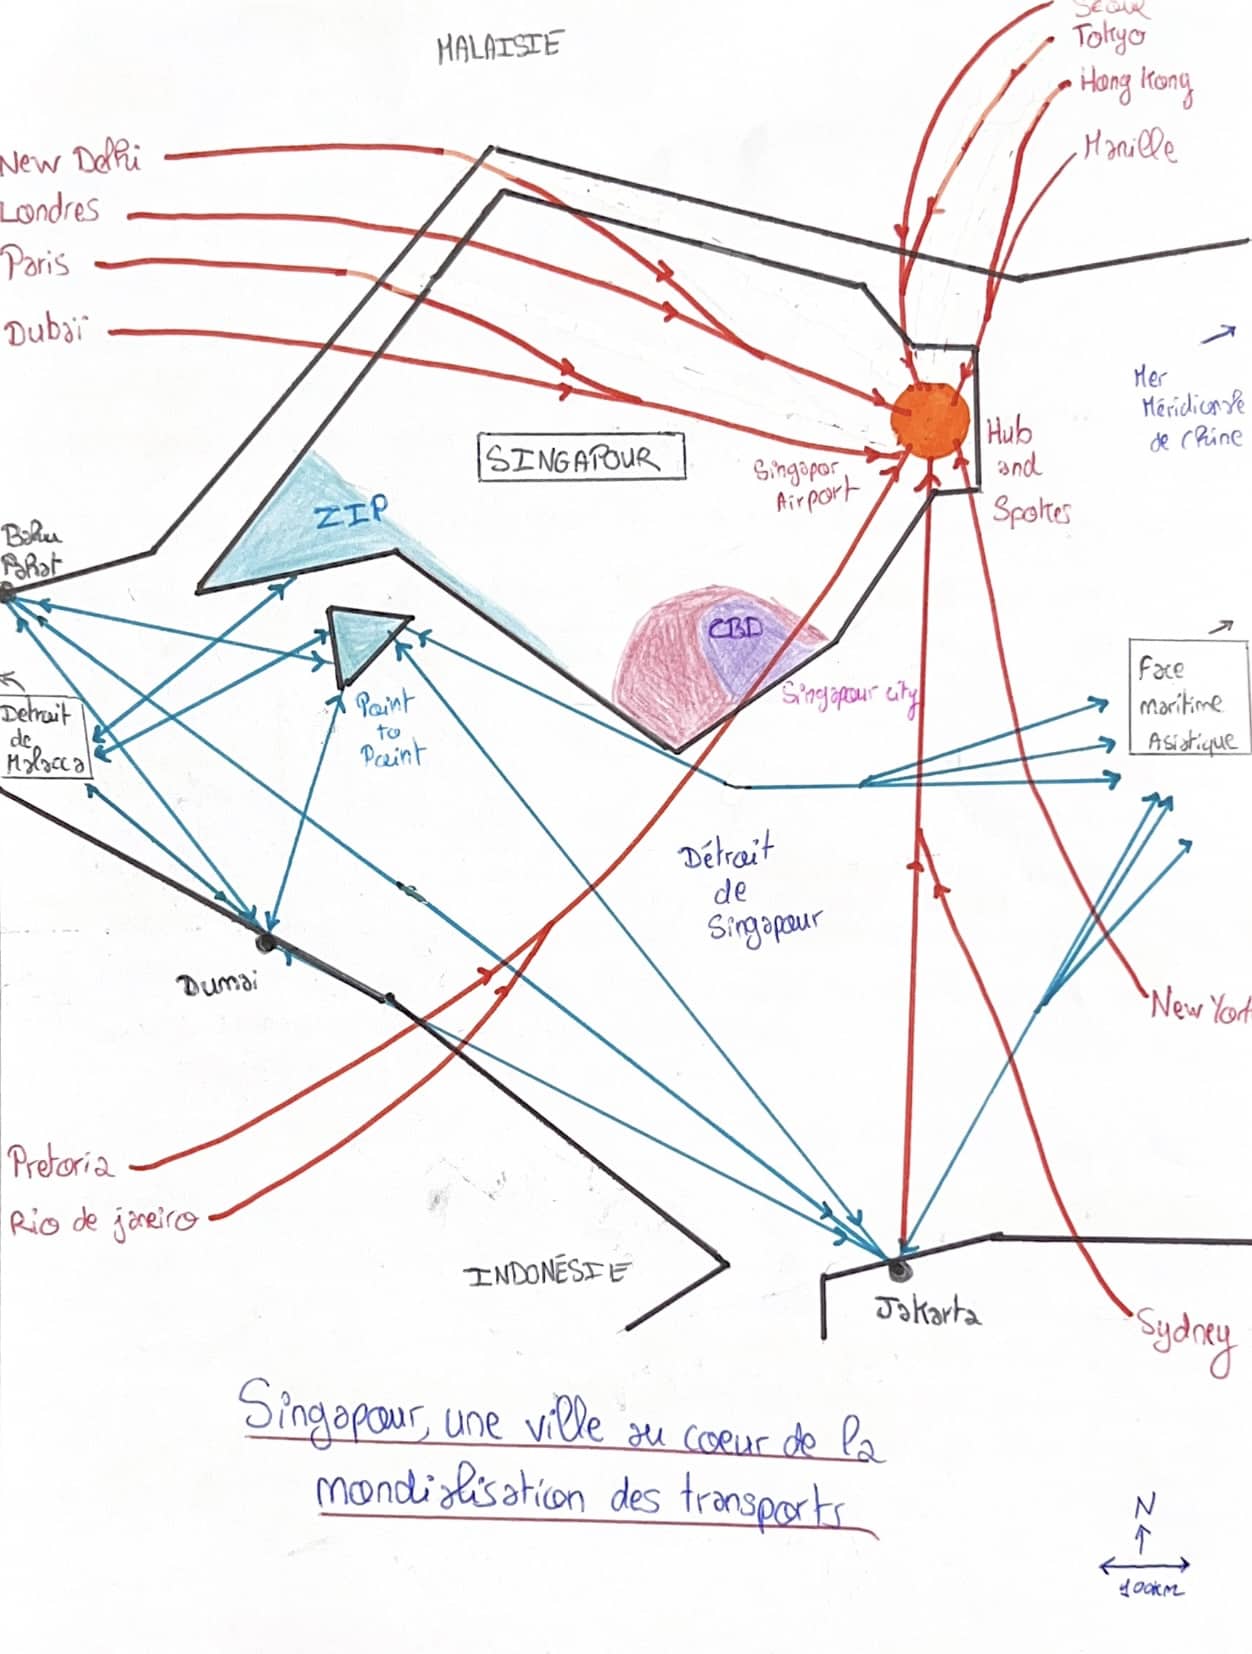 MALAISIE
Séoul
Tokyo
Hong Kong
Manille
New Delhi
Londres
Paris
Dubaï
Mer
Méridionale
de Chine
SINGAPOUR
Singapor
Airport
Hub
and
Spokes
ZIP
Batu
Pahat
CBD
Singapour city
Face
maritime
Asiatique
Detrait
de
Malacca
Point
to
Point
Détrait
de
Singapour
Dumai
New York
Pretoria
Rio de janeiro
INDONÉSIE
Jakarta
Sydney
Singapour, une ville au coeur de la
mondialisation des transports
N
100km